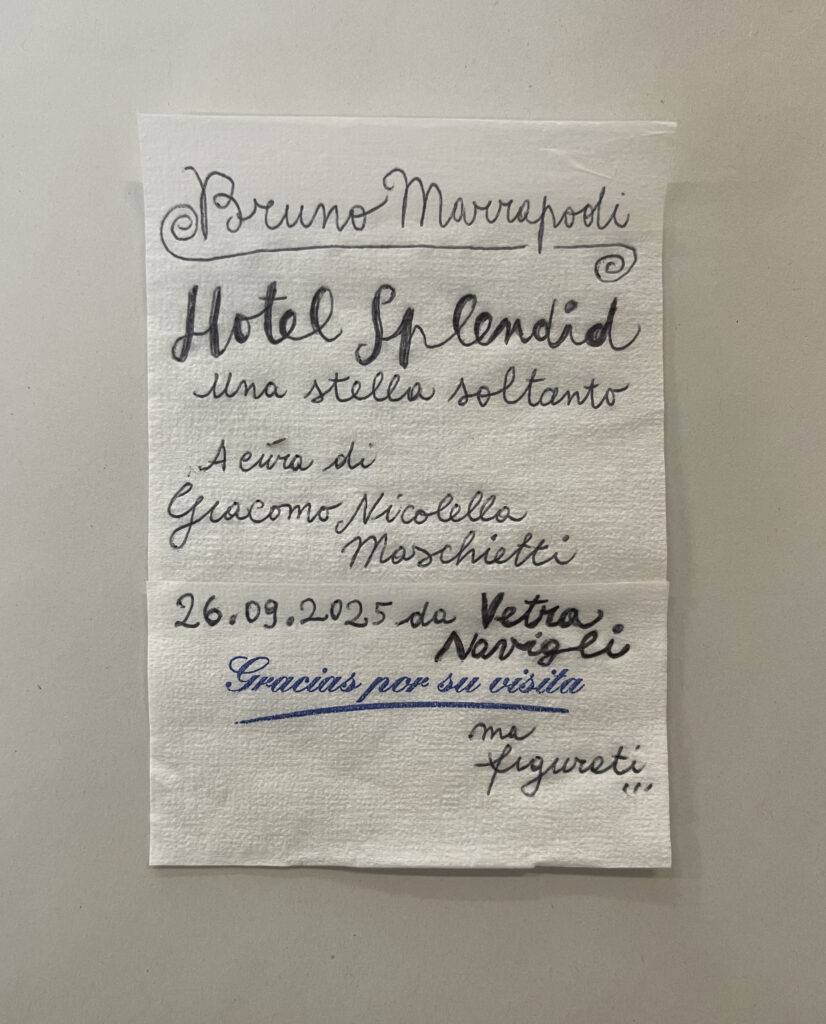 Bruno Marrapodi
Hotel Splendid
una stella soltanto
A cura di
Giacomo Nicolella
Maschietti
26.09.2025 da Vetra
Navigli
Gracias por su visita
ma
figurati
...